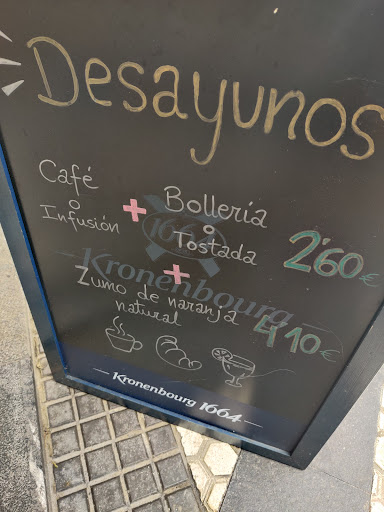 Desayunos
Café + Bollería
o o
Infusión Tostada 2'60€
1664
Kronenbourg
+
Zumo de naranja
natural 4'10€
Kronenbourg 1664